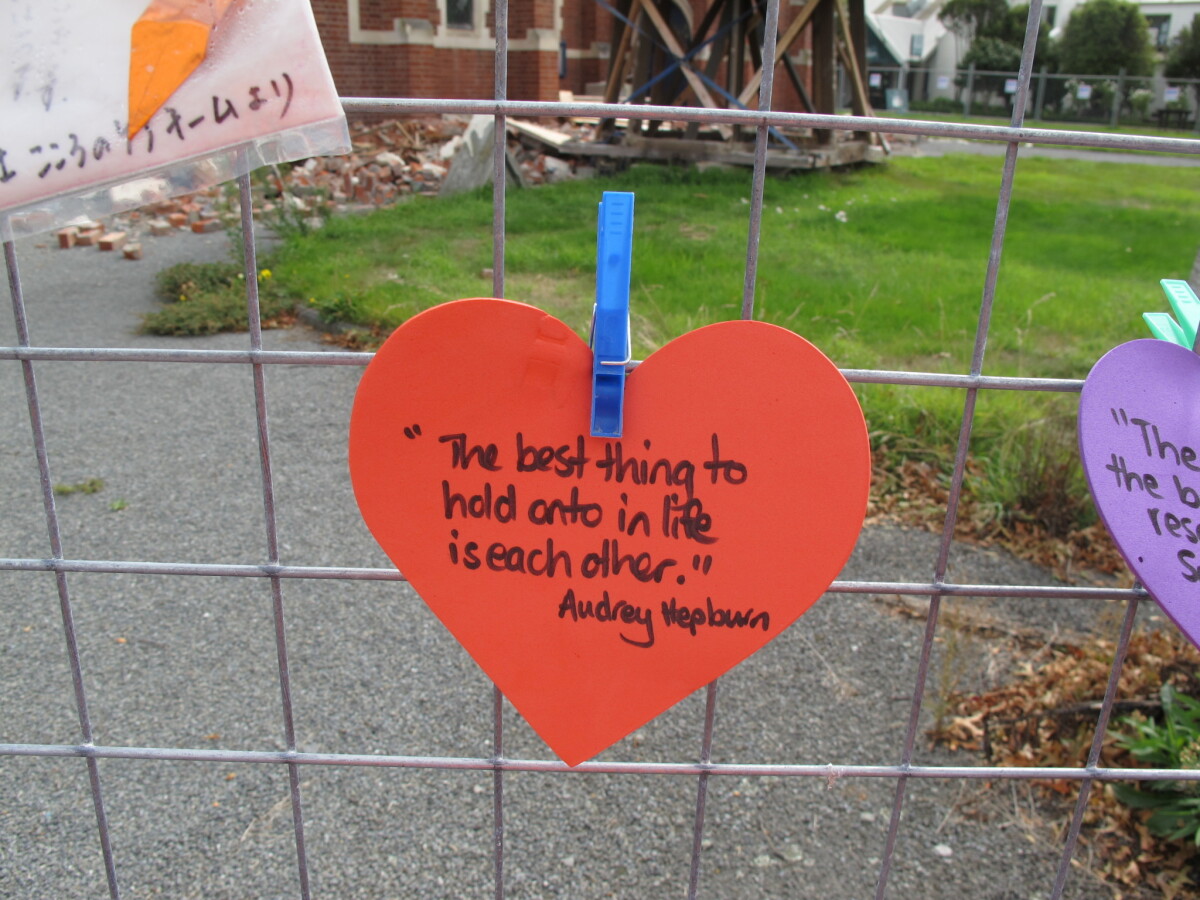 こころのケアチームより
" The best thing to
hold onto in life
is each other."
Audrey Hepburn
"The
the b
res
S